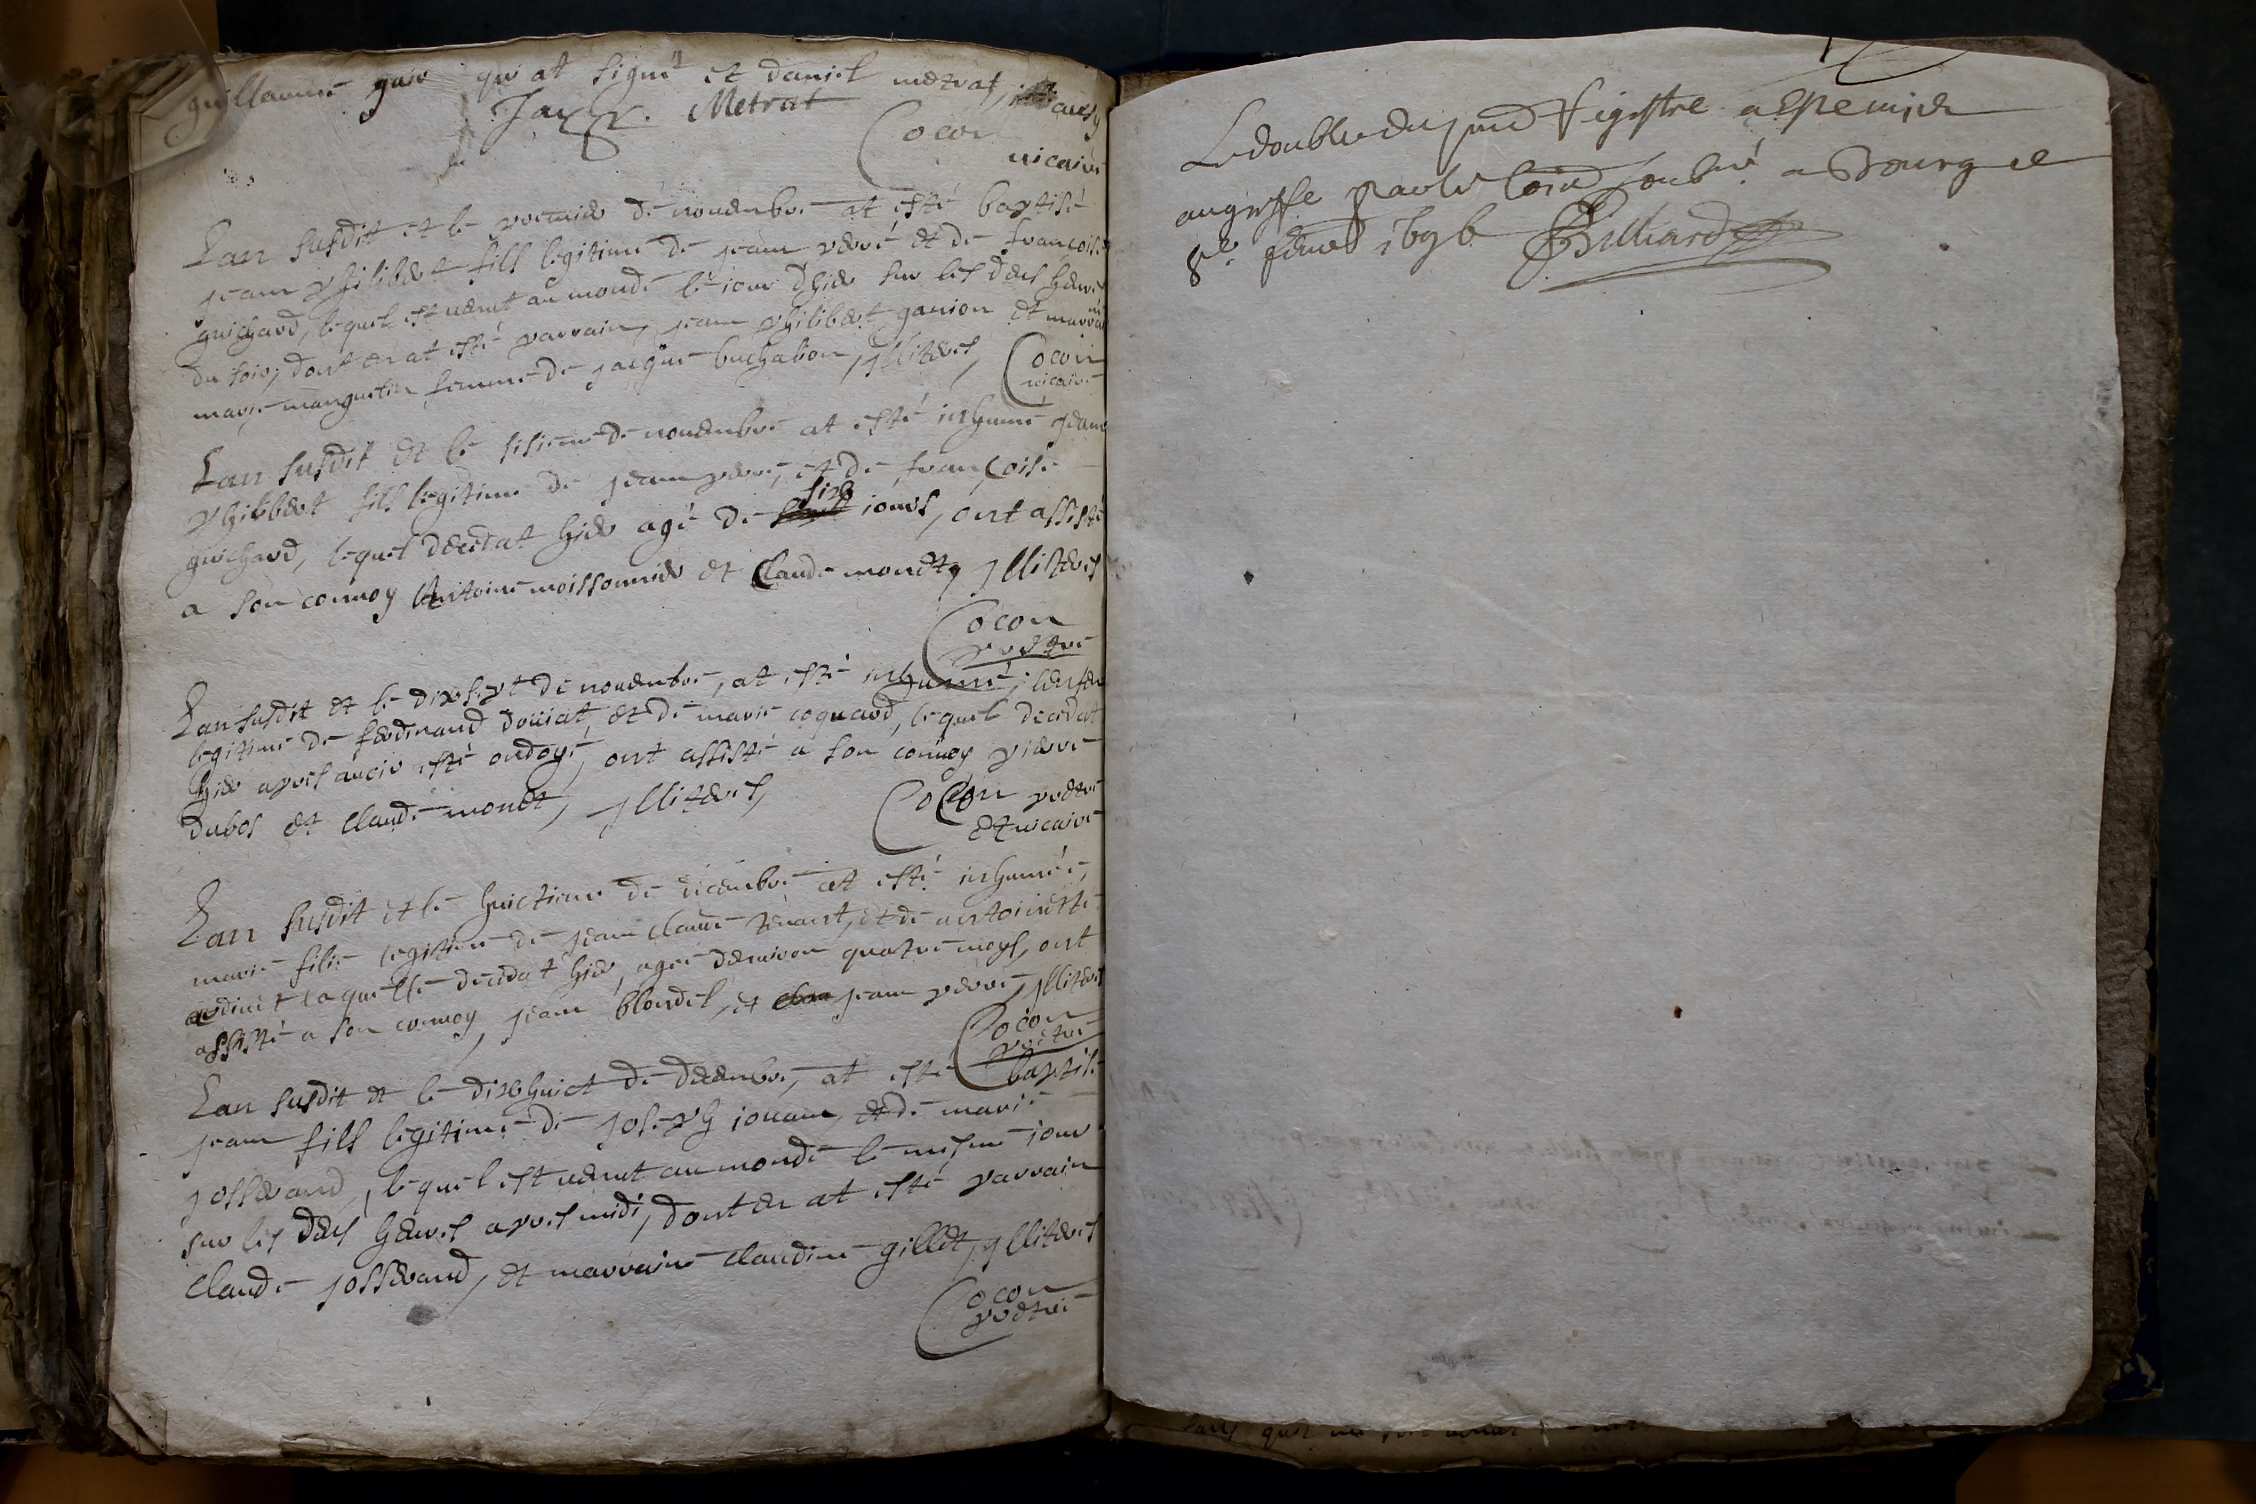 guillaume gui qui at signé et daniel metrat, aussy
Jay Metrat
Cocon
vicaire
Lan susdit et le premier de novembre at esté baptisé
jean philibert fils legitime de jean perré et de françoise
guichard, lequel est venut au monde le jour dhier sur les deus heures
du soir, dont en at esté parrain, jean philibert ganion et marraine
marie manguelin femme de jacque buchalion, jlliteres,
Cocon
vicaire
Lan susdit et le sisieme de novembre at esté inhumé jean
philibert fils legitime de jean perré, et de françoise
guichard, lequel decedat hier agé de six jours, ont assisté
a son convoy Antoine moissonnier et Claude monet, jlliteres
Cocon
prêtre
Lan susdit et le dixsept de novembre, at esté inhumé, lenfan
legitime de ferdinand douiat, et de marie coquard, lequel decedat
hier apres avoir esté ondoyé, ont assisté a son convoy pierre
dubos et claude monet, jlliteres,
Cocon prêtre
et vicaire
Lan susdit et le huictieme de decembre at esté inhumée,
marie filie legitime de jean claude tenant, et de antoinette
laquelle decedat hier, agée denviron quatre moys, ont
assisté a son convoy, jean blondel, et jean perré, jlliteres
Cocon
prêtre
Lan susdit et le dixhuict de decembre, at esté baptisé
jean fils legitime de joseph jouan, et de marie
josserand, lequel est venut au monde le mesme jour
sur les deus heures apres midi, dont en at esté parrain
claude josserand, et marraine claudine gillet, jlliteres
Cocon
prêtre
Le double du pnt Registre a esté mis
au greffe par le a Bourg ce
8e 1696 Billiard